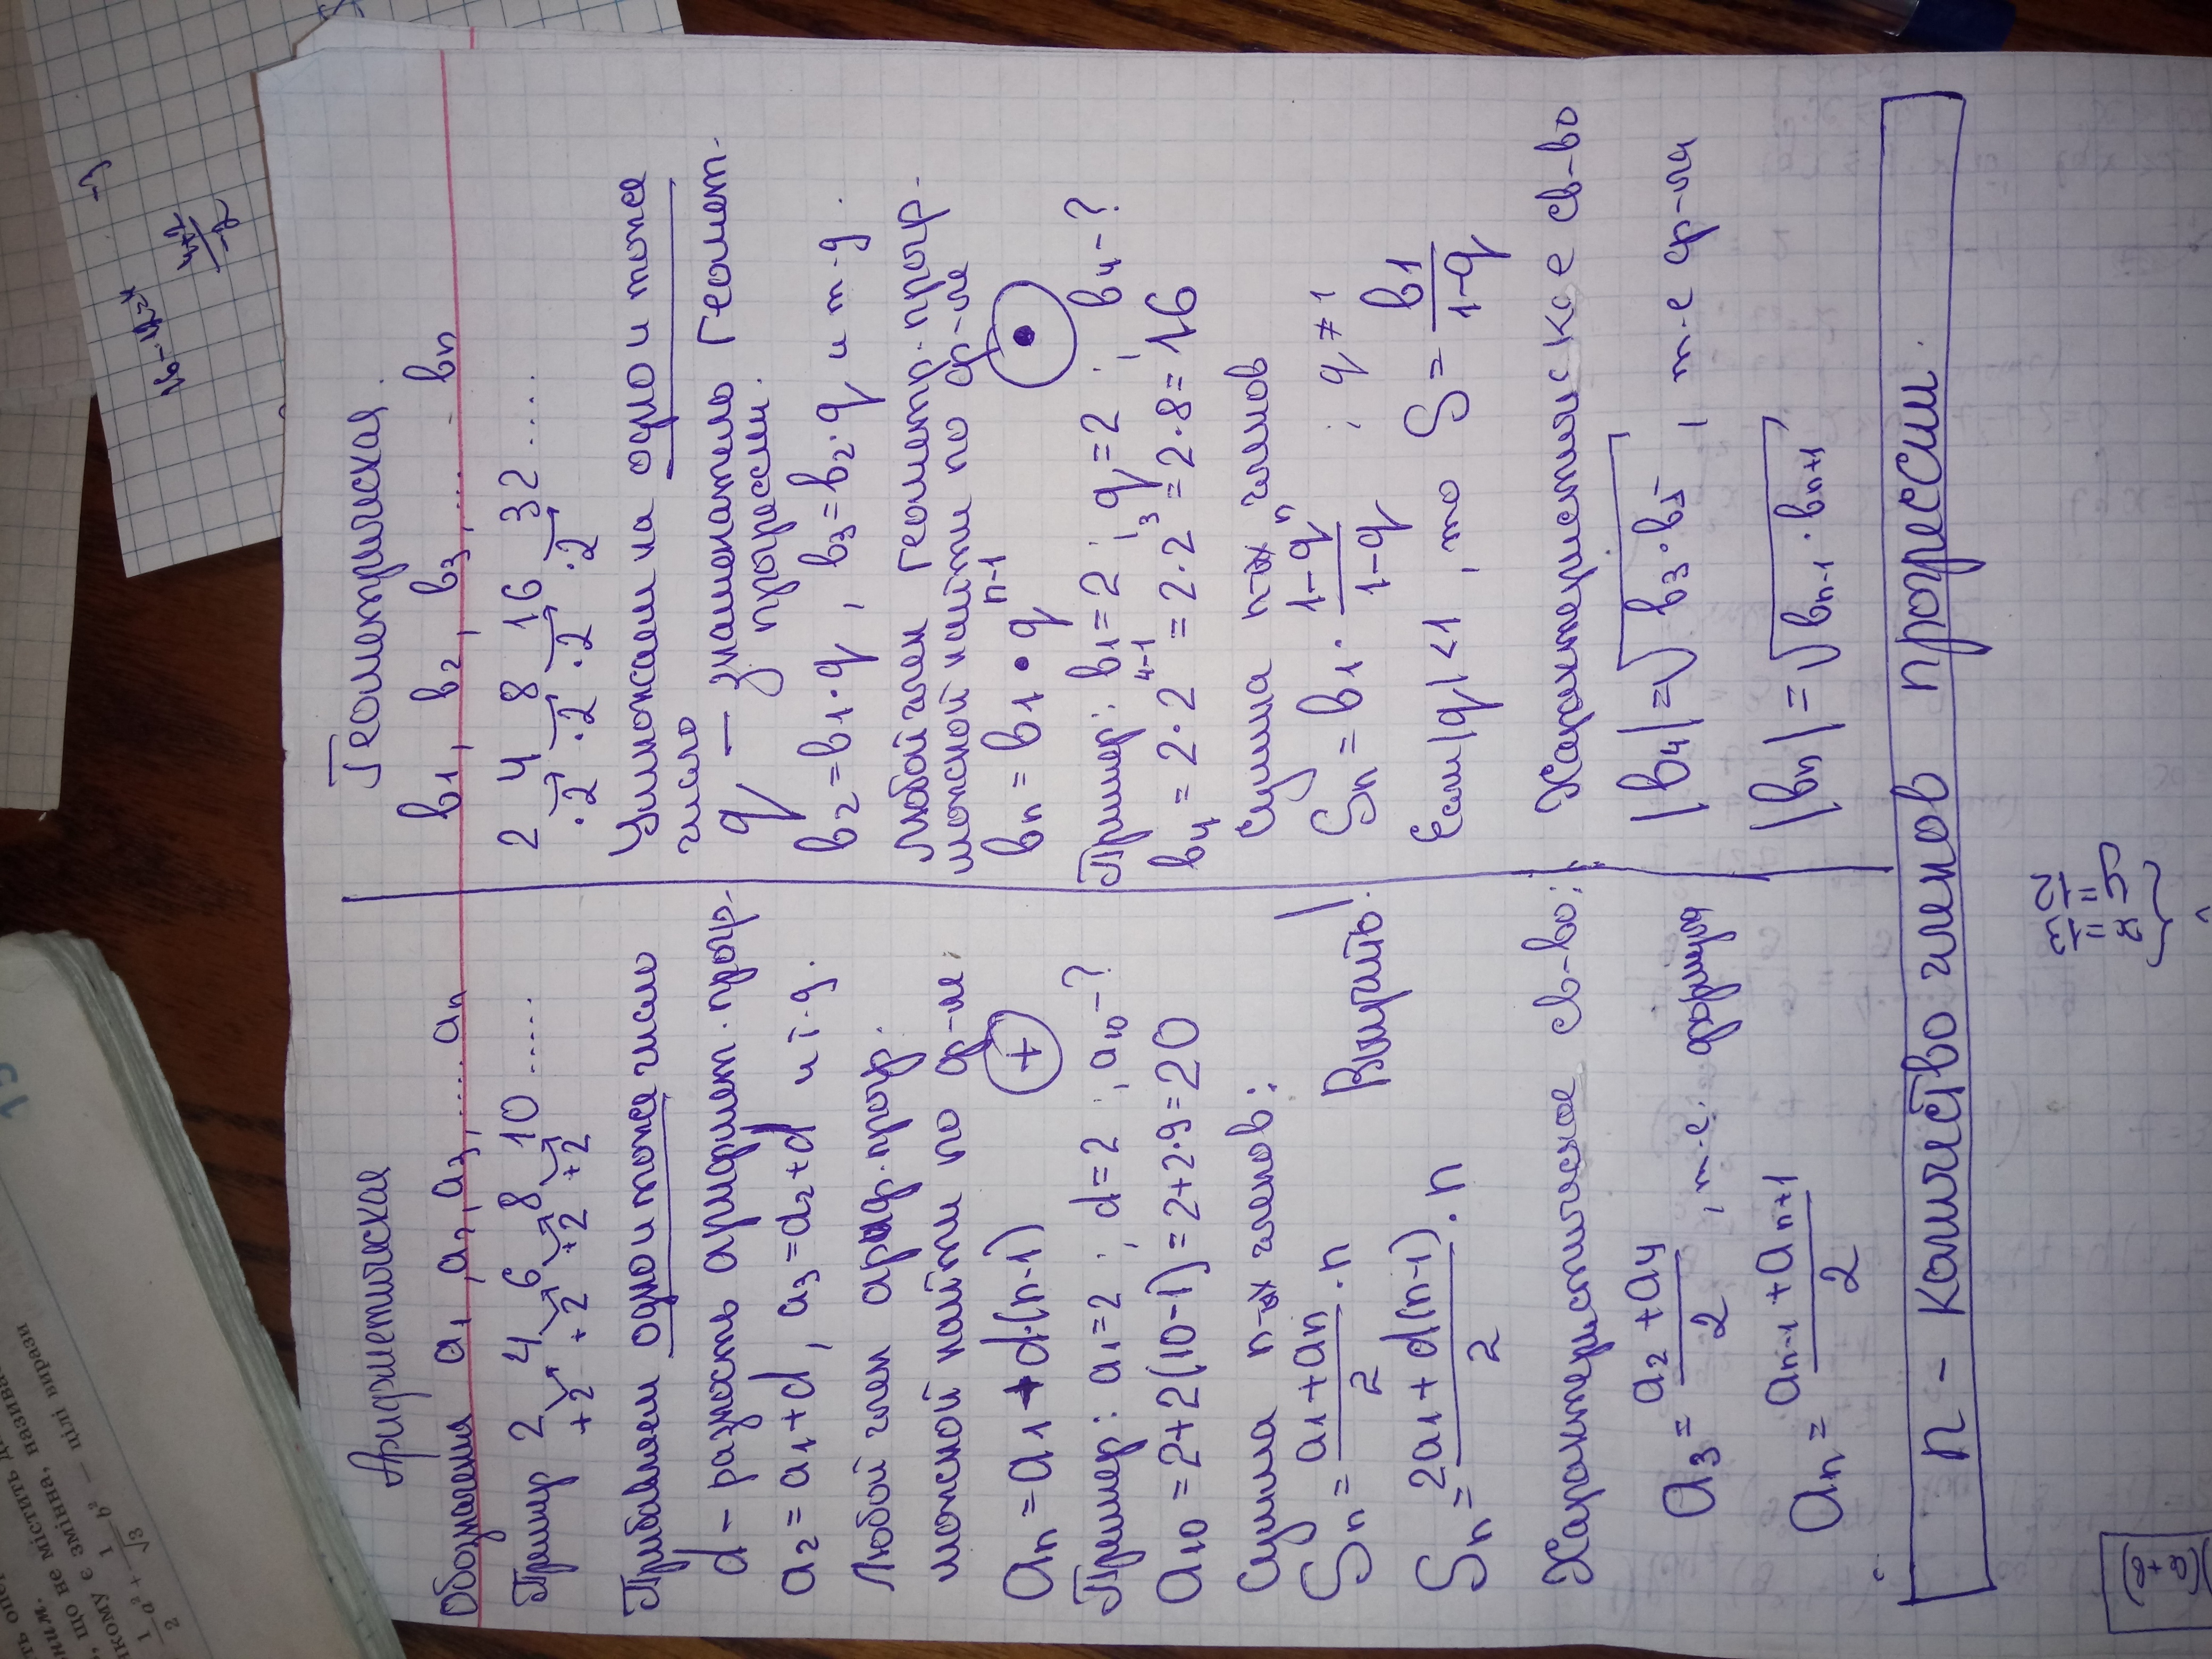 Арифметическая
Обозначения a1, a2, a3, ..... an
Пример 2 4 6 8 10 ......
+2 +2 +2 +2
Прибавляем одно и тоже число
d – разность арифмет. прогр.
a2 = a1+d, a3 = a2+d и т.д.
Любой член арифр. прогр.
можной найти по ф-ле:
an = a1 + d·(n-1) +
Пример: a1=2 ; d=2 ; a10-?
a10 = 2+2(10-1) = 2+2·9=20
Сумма n-ых членов:
Sn = a1+an / 2 · n
Sn = 2a1 + d(n-1) / 2 · n
Выучить!
Характеристическое св-во:
a3 = a2 + a4 / 2 , т-е. формула
an = an-1 + an+1 / 2
Геометрическая.
b1, b2, b3, ... bn
2 4 8 16 32 .....
·2 ·2 ·2 ·2
Умножаем на одно и тоже
число
q – знаменатель геомет.
прогрессии.
b2=b1·q, b3=b2·q и т.д.
Любой член геометр. прогр.
можной найти по ф-ле
bn = b1 · q n-1 ·
Пример: b1=2 ; q=2 ; b4-?
b4 = 2·2 4-1 = 2·2 3 = 2·8=16
Сумма n-ых членов
Sn = b1 · 1-q n / 1-q ; q ≠ 1
Если |q|<1, то S = b1 / 1-q
Характеристическое св-во
|b4| = √b3·b5 , т-е ф-ла
|bn| = √bn-1 · bn+1
n - количество членов прогрессии.